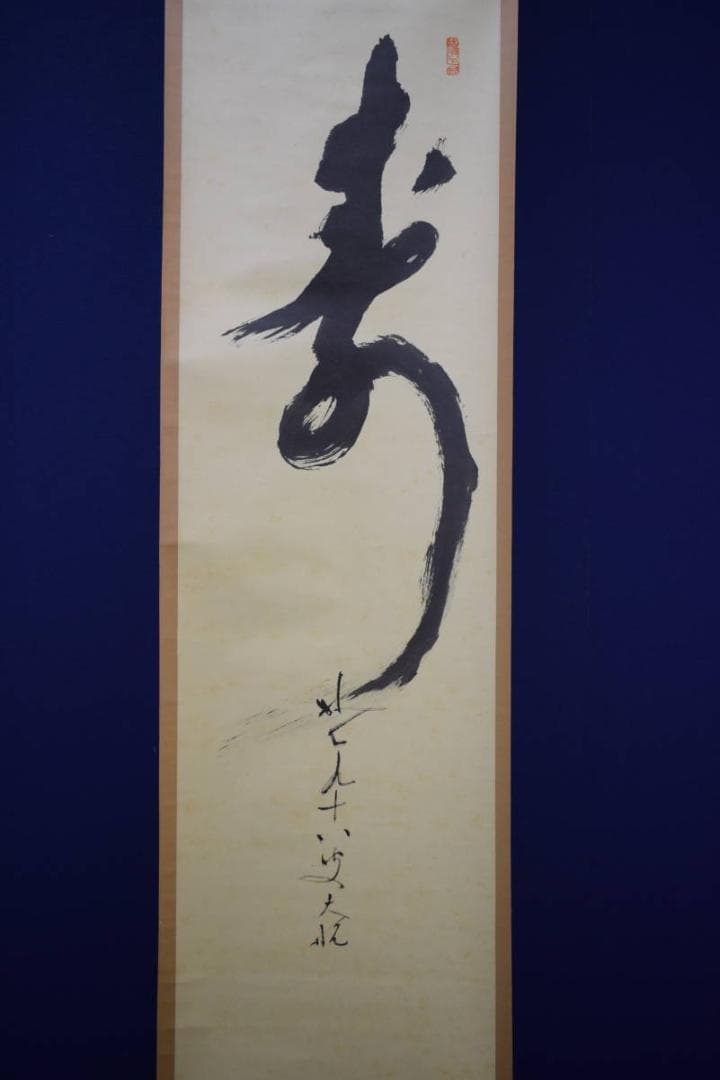 寿
九十八叟大航